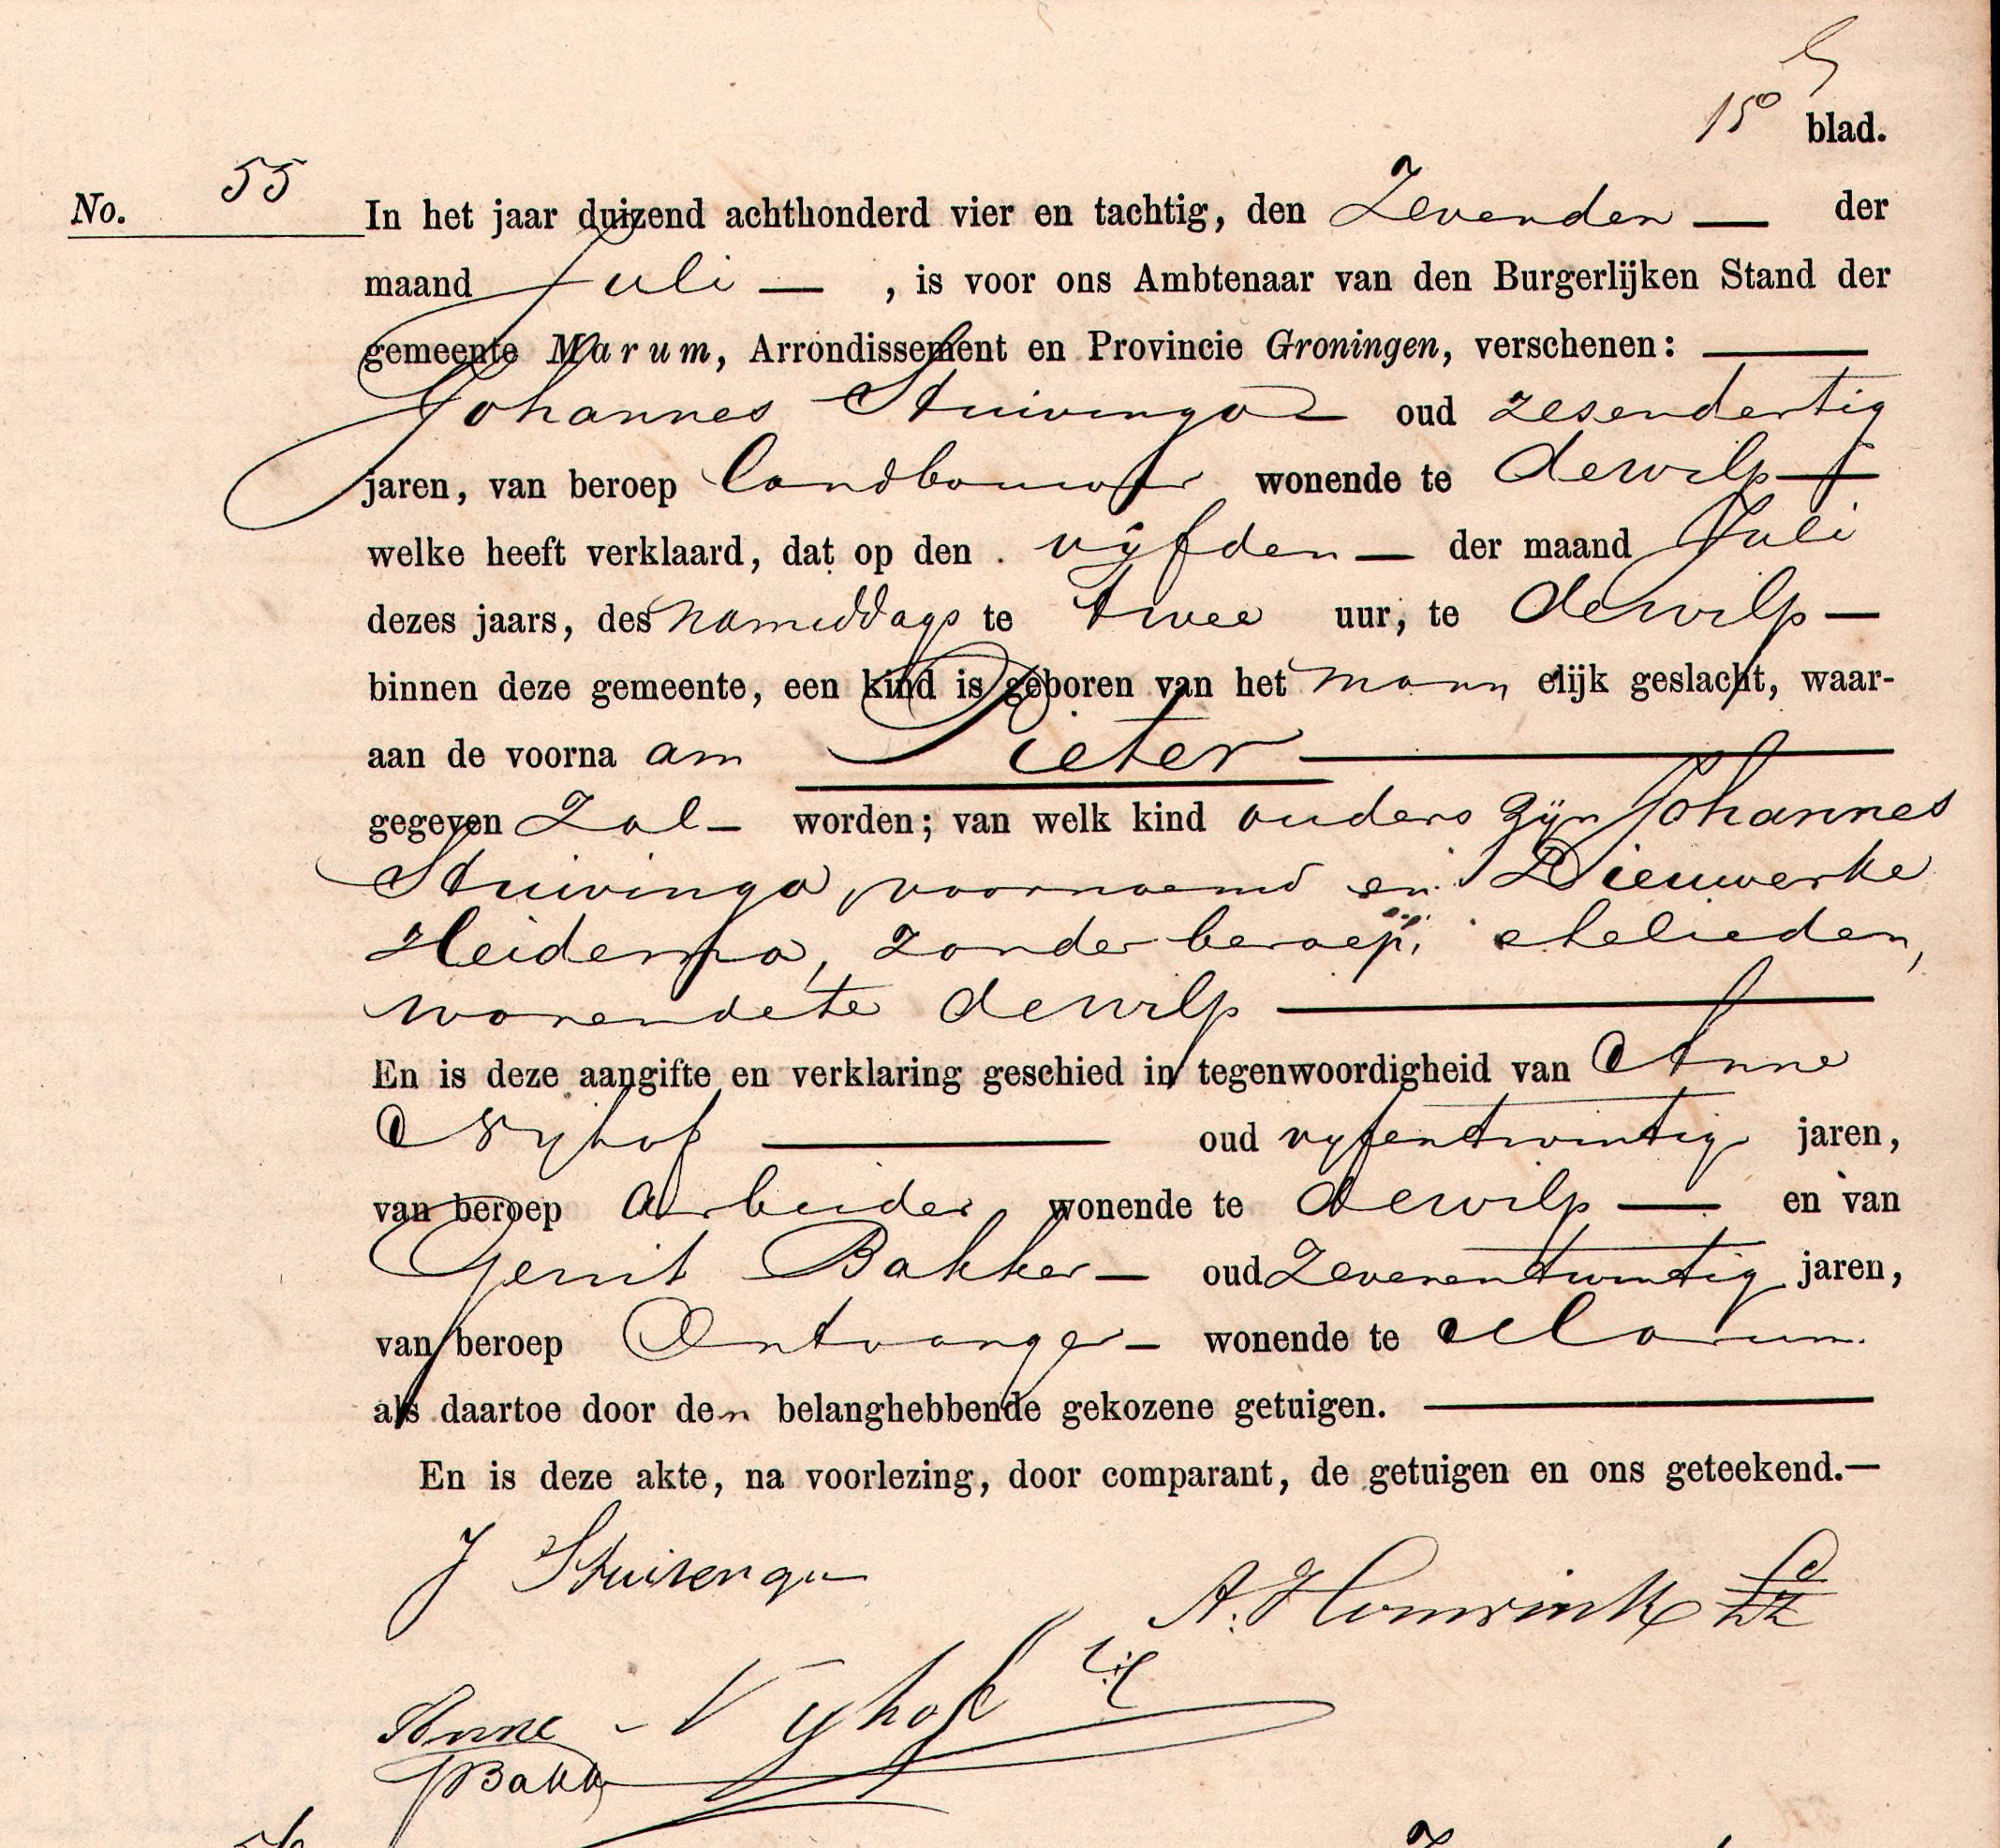 15e blad.
No. 55
In het jaar duizend achthonderd vier en tachtig, den Zevenden — der
maand Juli — , is voor ons Ambtenaar van den Burgerlijken Stand der
gemeente Marum, Arrondissement en Provincie Groningen, verschenen: —
Johannes Stuivinga — oud zesendertig
jaren, van beroep landbouwer wonende te de wilp —
welke heeft verklaard, dat op den vijfden — der maand Juli
dezes jaars, des namiddags te twee uur, te de wilp —
binnen deze gemeente, een kind is geboren van het mann elijk geslacht, waar-
aan de voorna am Pieter —
gegeven Zal — worden; van welk kind ouders zijn Johannes
Stuivinga, voornoemd en Dieuwerke
Heidema, zonder beroep, echelieden,
wonende te de wilp —
En is deze aangifte en verklaring geschied in tegenwoordigheid van Anne
Nyhof — oud vyfentwintig jaren,
van beroep arbeider wonende te de wilp — en van
Gerrit Bakker — oud Zevenentwintig jaren,
van beroep Ontvanger — wonende te Marum.
als daartoe door den belanghebbende gekozene getuigen. —
En is deze akte, na voorlezing, door comparant, de getuigen en ons geteekend.—
J Stuivenga
A. Homrink
Anne Nyhof
GBakker